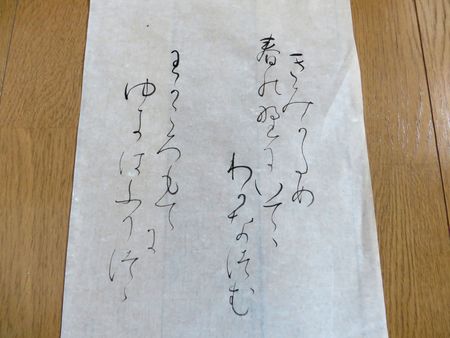 きみかため
春の野にいてゝ
わかなつむ
わかころもてに
ゆきはふりつゝ